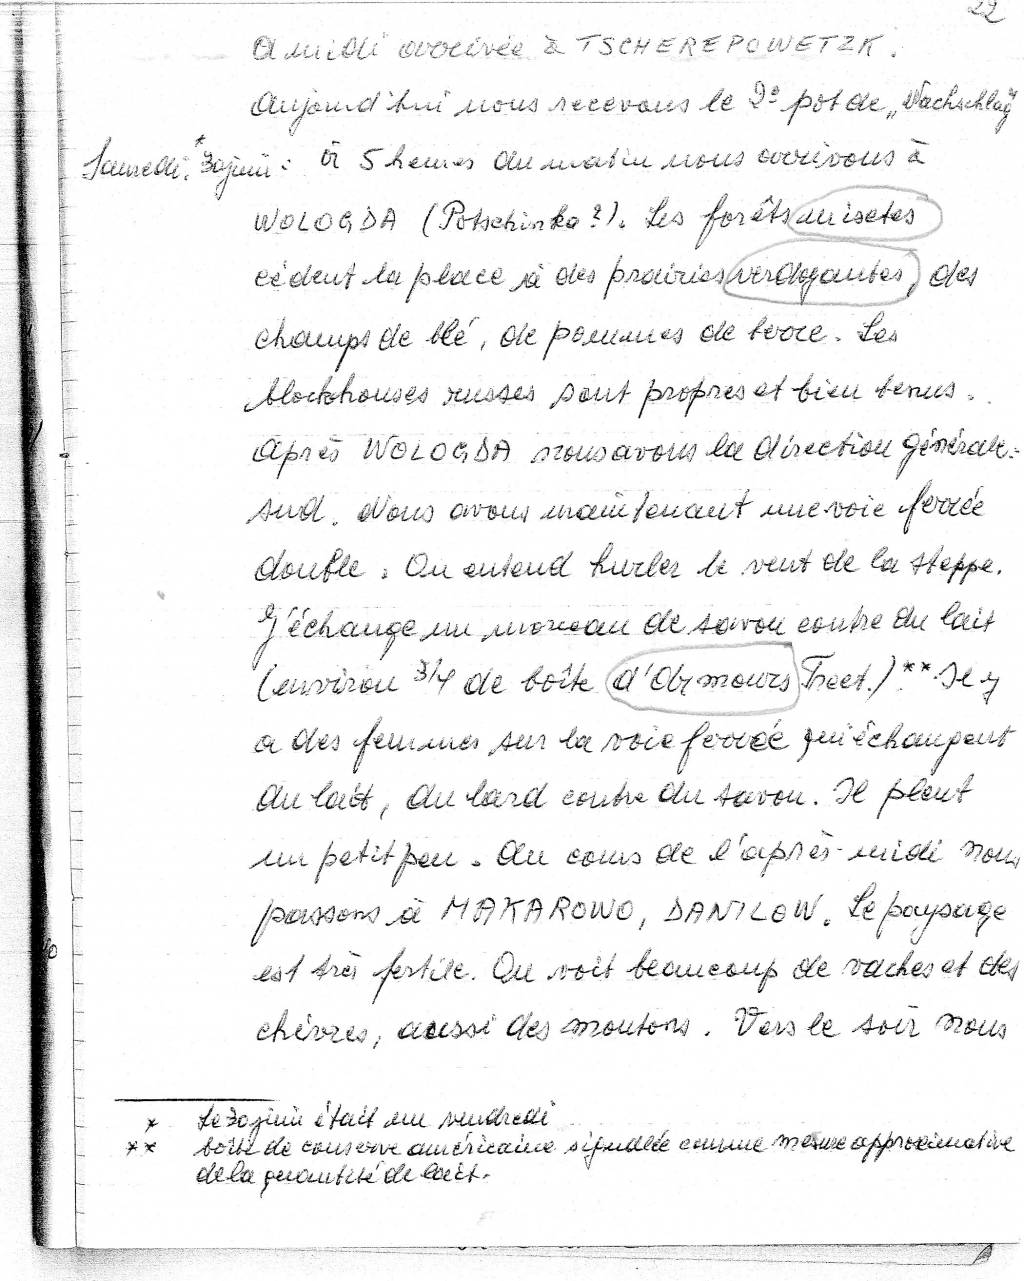 22
A midi arrivée à TSCHEREPOWETZK.
Aujourd'hui nous recevons le 2e pot de „Nachschlag"
Samedi,* 30 juin : à 5 heures du matin nous arrivons à
WOLOGDA (Potschinka ?). Les forêts mixtes
cèdent la place à des prairies verdoyantes, des
champs de blé, de pommes de terre. Les
blockhouses russes sont propres et bien tenus.
Après WOLOGDA nous avons la direction générale :
sud. Nous avons maintenant une voie ferrée
double. On entend hurler le vent de la steppe.
J'échange un morceau de savon contre du lait
(environ 3/4 de boîte Treet.)** Il y
a des femmes sur la voie ferrée qui échangent
du lait, du lard contre du savon. Il pleut
un petit peu. Au cours de l'après-midi nous
passons à MAKAROWO, DANILOW. Le paysage
est très fertile. On voit beaucoup de vaches et des
chèvres, aussi des moutons. Vers le soir nous
* Le 30 juin était un vendredi
** boîte de conserve américaine signalée comme mesure approximative
de la quantité de lait.